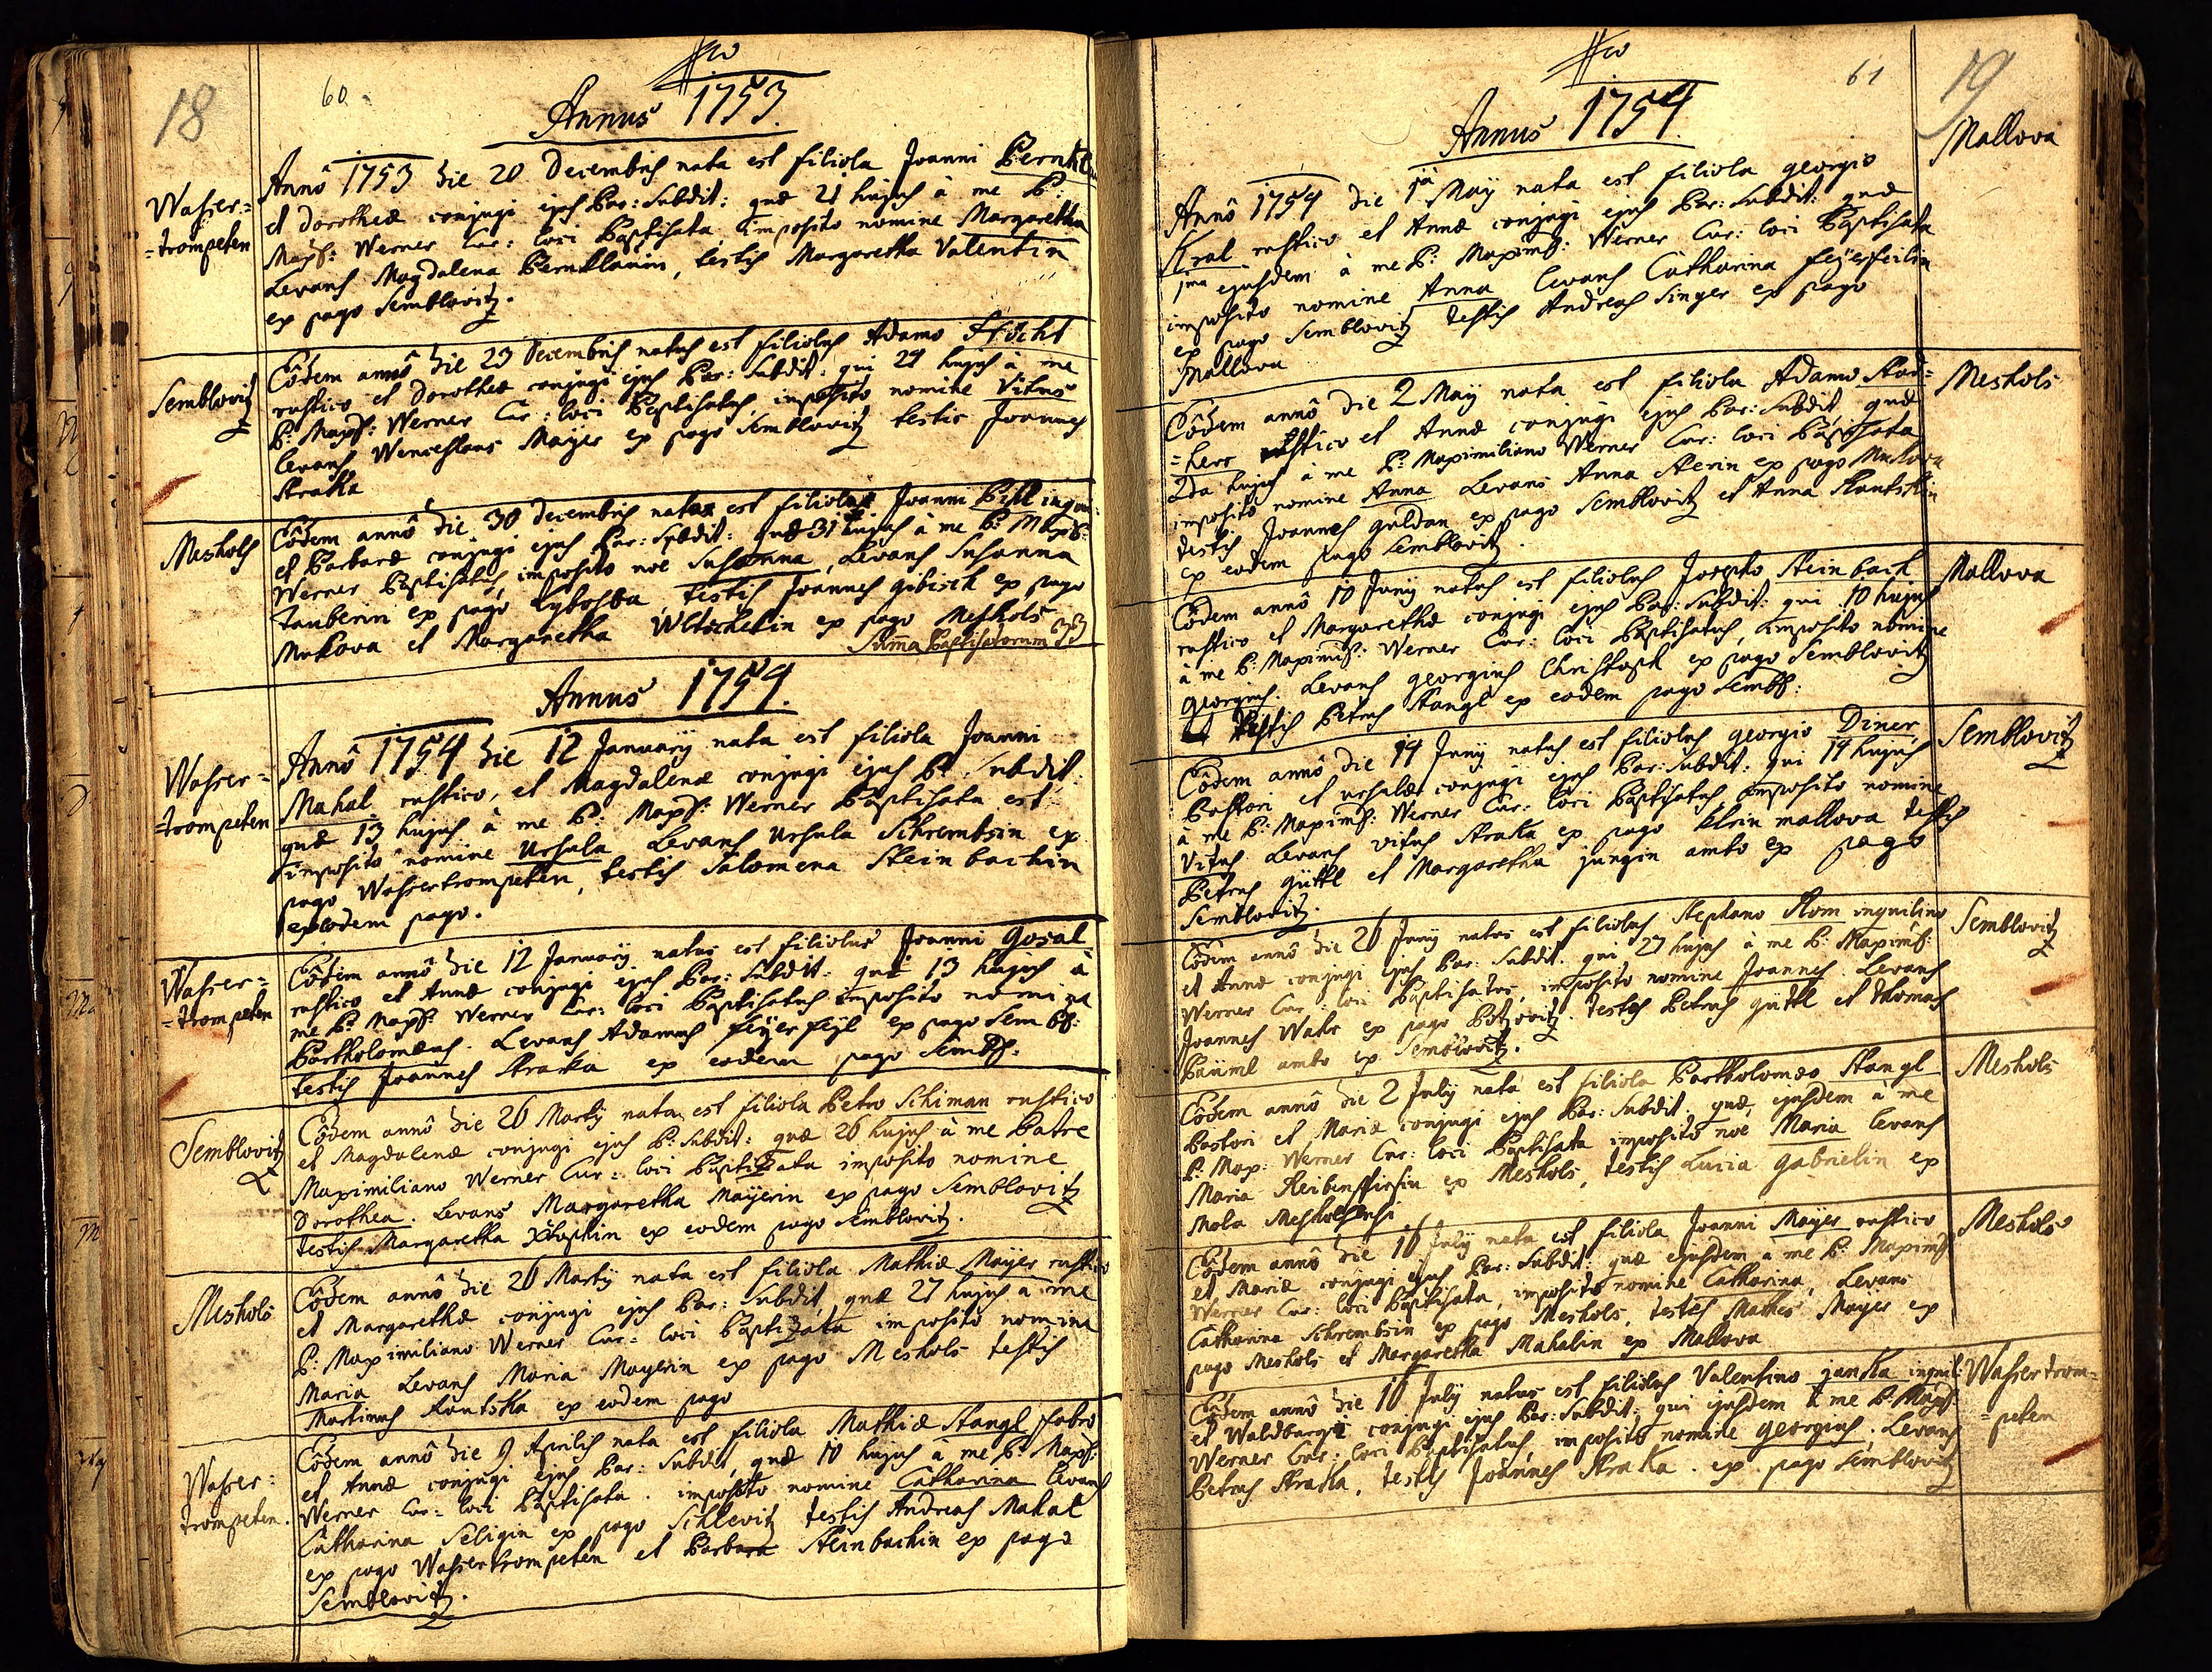 18
60.
Annus 1753.
Wasser=
=trompeten
Annô 1753 die 20 Decembris nata est filiola Joanni
et Dorotheæ conjugi ejus Par: Subdit: quæ 21 hujus à me P:
Max: Werner Cur: loci Baptisata imposito nomine Margaretha
Levans Magdalena Pernklauin, testis Margaretha Valentin
ex pago Semblovitz.
Semblovitz
Eôdem annô die 23 Decembris natus est filiolus Adamo
rustico et Dorotheæ conjugi ejus Par: Subdit: qui 24 hujus à me
P: Max: Werner Cur: loci Baptisatus, imposito nomine Vitus
levans Wenceslaus Mayer ex pago Semblovitz testis Joannes
Straka
Meshols
Eôdem annô die 30 Decembris nata est filiola Joanni
et Barbaræ conjugi ejus Par: Subdit: quæ 31 hujus à me P:
Werner Baptisata, imposito noe Susanna, Levans Susanna
Tauberin ex pago testis Joannes gibisch ex pago
Mukova et Margaretha ex pago Meshols
Suma Baptisatorum 33
Annus 1754.
Wasser=
=trompeten
Annô 1754 die 12 January nata est filiola Joanni
Mahal rustico, et Magdalenæ conjugi ejus P: Subdit:
quæ 13 hujus à me P: Max: Werner Baptisata est
imposito nomine Ursula Levans Ursula Schrembsin ex
pago Wassertrompeten, testis Salomena Steinbachin
ex eodem pago.
Wasser=
=trompeten
Eôdem annô die 12 January natus est filiolus Joanni Gosal
rustico et Annæ conjugi ejus Par: Subdit: qui 13 hujus à
me P: Max: Werner Cur: loci Baptisatus imposito nomine
Bartholomæus. Levans Adamus feyerfeyl ex pago Sembl:
testis Joannes Straka ex eodem pago Sembl:
Semblovitz
Eôdem annô die 26 Marty nata est filiola Petro Schiman rustico
et Magdalenæ conjugi ejus P: Subdit: quæ 26 hujus à me Patre
Maximiliano Werner Cur: loci Baptizata imposito nomine
Dorothea. Levans Margaretha Mayerin ex pago Semblovitz
testis Margaretha ex eodem pago Semblovitz.
Meshols
Eôdem annô die 26 Marty nata est filiola Mathiæ Mayer rustico
et Margarethæ conjugi ejus Par: Subdit, quæ 27 hujus à me
P: Maximiliano Werner Cur: loci Baptizata imposito nomine
Maria Levans Maria Mayerin ex pago Meshols testis
Martinus ex eodem pago
Wasser=
trompeten.
Eôdem annô die 9 Aprilis nata est filiola Mathiæ Stangl fabro
et Annæ conjugi ejus Par: Subdit, quæ 10 hujus à me P: Max:
Werner Cur: loci Baptisata. imposito nomine Catharina levans
Catharina Seligin ex pago Schlevitz testis Andreas Mahal
ex pago Wassertrompeten et Barbara Steinbachin ex pago
Semblovitz.
61
19
Annus 1754.
Mallova
Annô 1754 die 1ma May nata est filiola georgio
Kral rustico et Annæ conjugi ejus Par: Subdit: quæ
1ma ejusdem à me P: Maxim: Werner Cur: loci Baptisata
imposito nomine Anna levans Catharina feyerfeilin
ex pago Semblovitz testis Andreas Singer ex pago
Mallova
Meshols
Eôdem annô die 2 May nata est filiola Adamo
=herr rustico et Annæ conjugi ejus Par: Subdit, quæ
2da hujus à me P: Maximiliano Werner Cur: loci Baptisata
imposito nomine Anna Levans Anna Sterin ex pago Mukova
testis Joannes guldan ex pago Semblovitz et Anna
ex eodem pago Semblovitz.
Mallova
Eôdem annô 10 Juny natus est filiolus Josepho Steinbach
rustico et Margarethæ conjugi ejus Par: Subdit: qui 10 hujus
à me P: Maxim: Werner Cur: loci Baptisatus, imposito nomine
georgius. Levans georgius Christoph ex pago Semblovitz
testis Petrus Stangl ex eodem pago Sembl:
Semblovitz
Eôdem annô die 14 Juny natus est filiolus georgio Diner
Pastori et Ursulæ conjugi ejus Par: Subdit: qui 14 hujus
à me P: Maxim: Werner Cur: loci Baptisatus, imposito nomine
Vitus Levans Vitus Straka ex pago klein mallova testis
Petrus güttl et Margaretha jungin ambo ex pago
Semblovitz.
Semblovitz
Eôdem annô die 26 Juny natus est filiolus Stephano Slom inquilino
et Annæ conjugi ejus Par: Subdit. qui 27 hujus à me P: Maxim:
Werner Cur: loci Baptisatus, imposito nomine Joannes. Levans
Joannes Wahr ex pago Potzovitz. testes Petrus güttl et Thomas
Bäuml ambo ex Semblovitz.
Meshols
Eôdem annô die 2 July nata est filiola Bartholomæo Stangl
Pastori et Mariæ conjugi ejus Par: Subdit. quæ, ejusdem à me
P: Max: Werner Cur: loci Baptisata imposito noe Maria levans
Maria ex Meshols, testis Lucia gabrielin ex
Mola Mesholsensi
Meshols
Eôdem annô die 16 July nata est filiola Joanni Mayer rustico
et Mariæ conjugi ejus Par: Subdit: quæ ejusdem a me P: Maxim:
Werner Cur: loci Baptisata, imposito nomine Catharina, Levans
Catharina Schrembsin ex pago Meshols, testes Mathes Mayer ex
pago Meshols et Margaretha Mahalin ex Mallova
Wassertrom=
=peten
Eôdem annô die 16 July natus est filiolus Valentino janka inquil:
et Waldburgæ conjugi ejus Par: Subdit: qui ejusdem à me P: Max:
Werner Cur: loci Baptisatus, imposito nomine georgius, Levans
Petrus Straka, testis Joannes Straka. ex pago Semblovitz